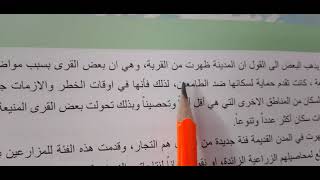 يذهب البعض الى القول ان المدينة ظهرت من القرية، وهي ان بعض القرى بسبب
، كانت تقدم حماية لسكانها ضد الطامعين، لذلك فأنها في اوقات الخطر والازمات
السكان من المناطق الاخرى التي هي أقل وتحصيناً وبذلك تحولت بعض القرى المنيعة
سكان أكثر عدداً وتنوعاً.
ظهرت في المدن القديمة فئة جديدة من هم التجار، وقدمت هذه الفئة للمزارعين
محاصيلهم الزراعية الزائدة، او